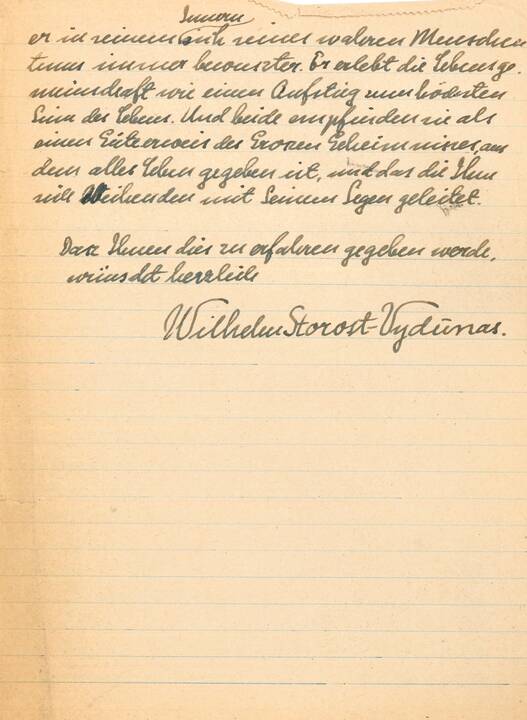 Innern
er in seinem sich seines wahren Menschen
tums immer bewuszter. Er erlebt die Lebensge
meinschaft wie einen Aufstieg zum höchsten
Sinn des Lebens. Und beide empfinden sie als
einen Güterweis des Groszen Geheimnisses, aus
dem alles Leben gegeben ist, und das die Ihm
sich Weihenden mit Seinem Segen geleitet.
Dasz Ihnen dies zu erfahren gegeben werde,
wünscht herzlich
Wilhelm Storost-Vydūnas.